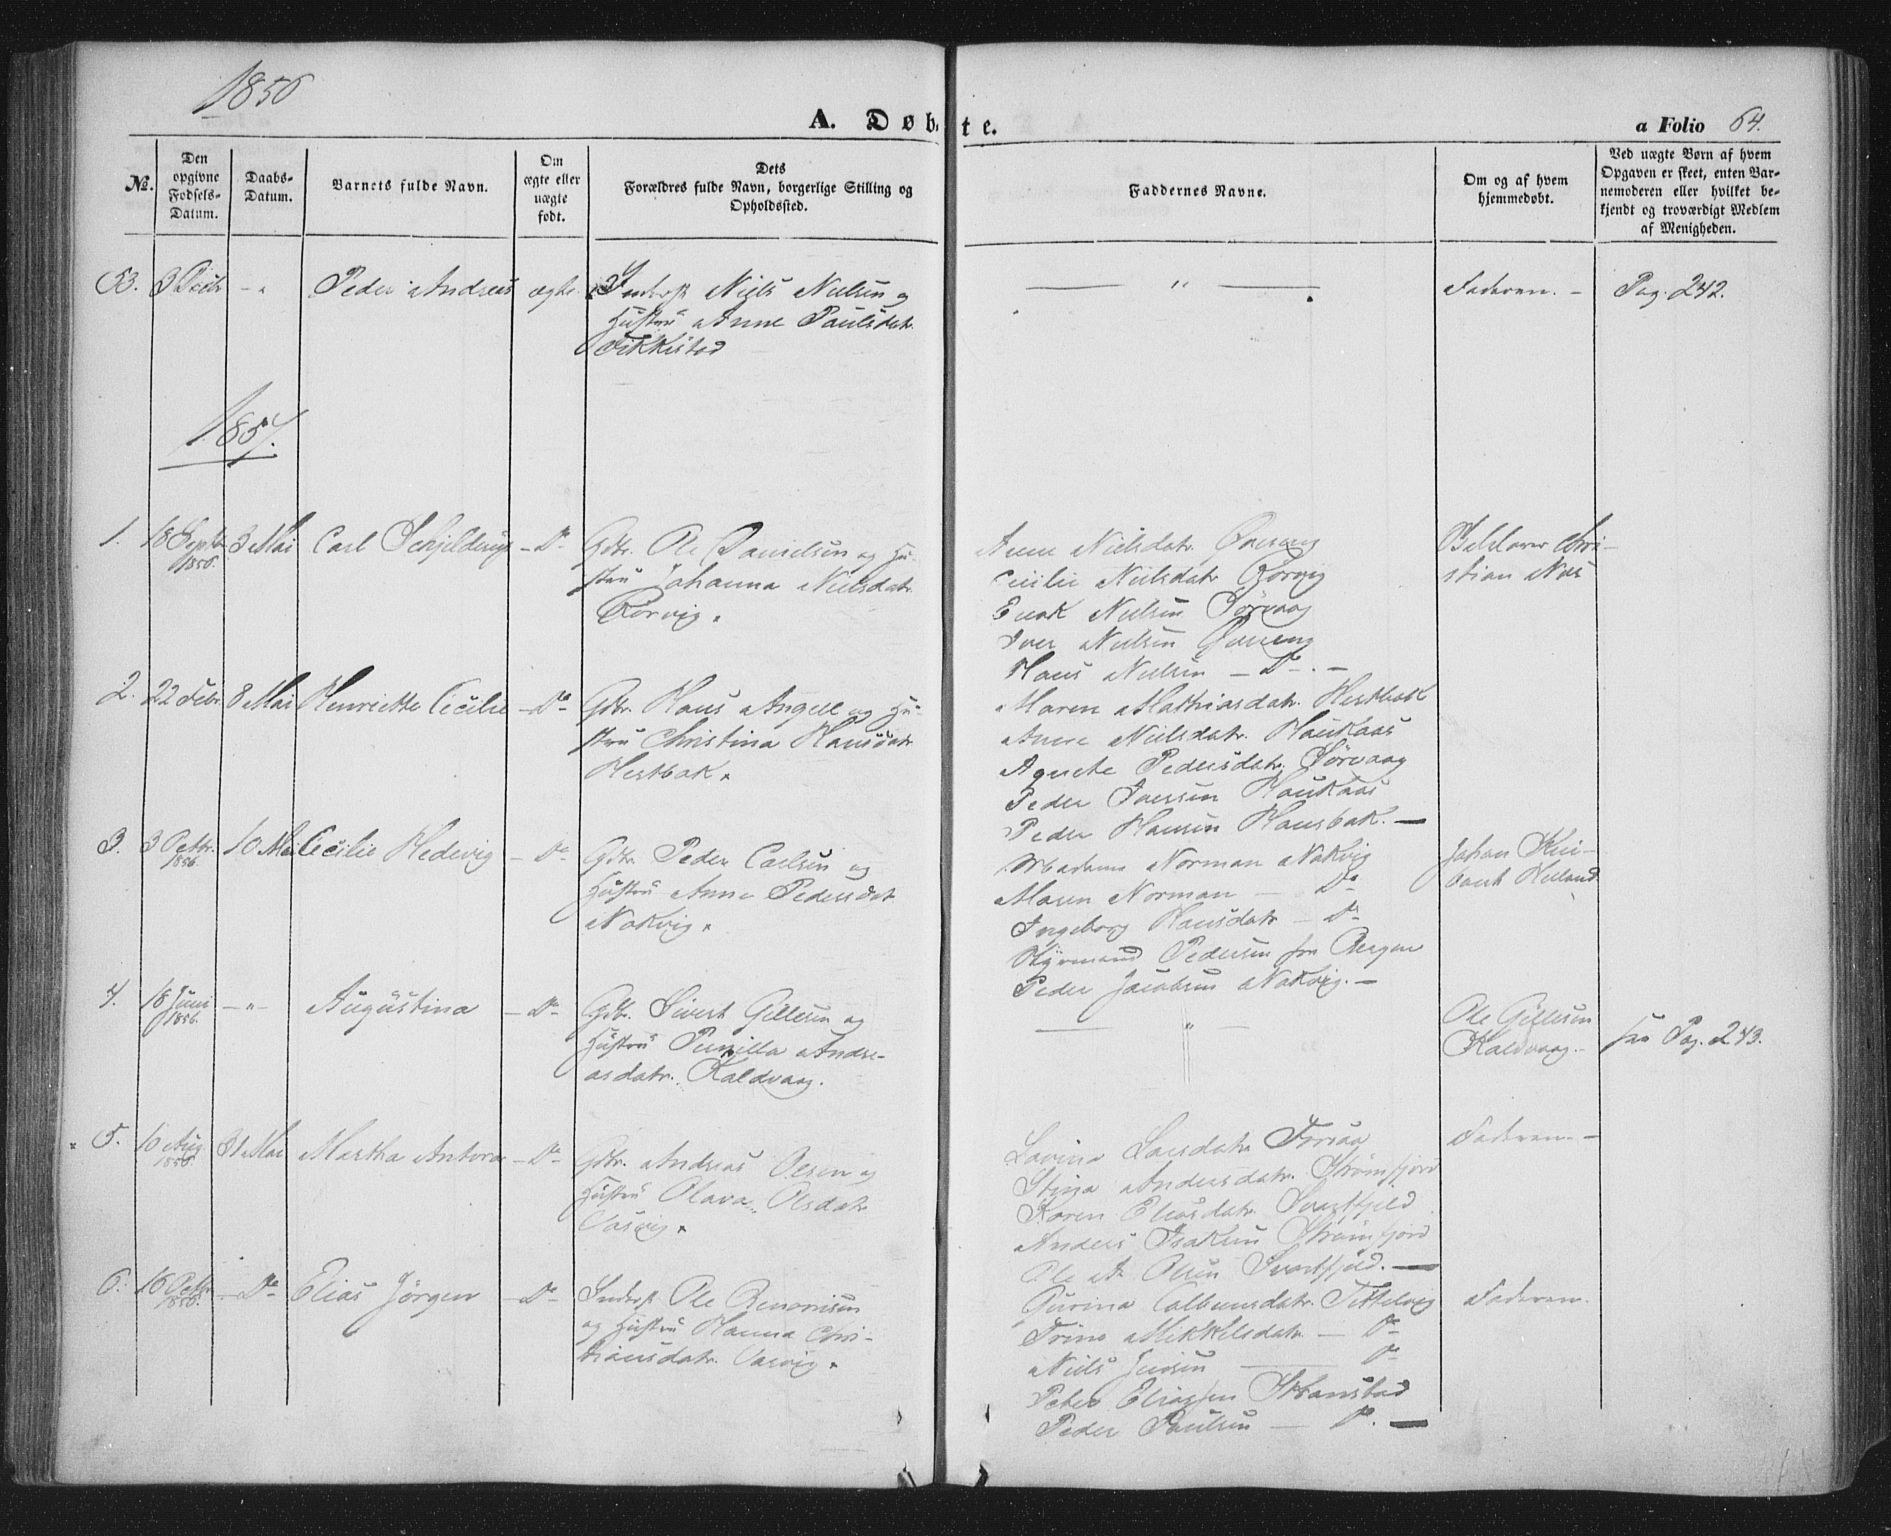 1856
A. Døbte.
a Folio 64.
No.
Den opgivne Fødsels-Datum.
Daabs-Datum.
Barnets fulde Navn.
Om ægte eller uægte født.
Dets Forældres fulde Navn, borgerlige Stilling og Opholdssted.
Faddernes Navne.
Om og af hvem hjemmedøbt.
Ved uægte Børn af hvem Opgaven er skeet, enten Barnemoderen eller hvilket bekjendt og troværdigt Medlem af Menigheden.
53. 3 Decbr - " Peder Andreas ægte Inderst Niels Nielsen og
Hustru Anne Paulsdatr
Fikkestad
" Faderen. - Pag. 242.
1857.
1. 18 Septbr 1856. 3 Mai Carl Schjelderup - Do Gdbr. Ole Danielsen og Hu-
stru Johanna Nielsdatr
Rørvig.
Anne Nielsdatr.
Cecilie Nielsdatr Rørvig
Enok Nielsen Sørvaag
Iver Nielsen
Hans Nielsen - Do. -
Chri-
stian
2. 22 Febr. 8 Mai Henrikke Cecilie - Do Gdbr. Hans Angell og Hu-
stru Christina Hansdatr
Hestbak.
Maren Mathiasdatr. Hestbak
Anne Nielsdatr. Haukaas
Agnete Pedersdatr. Sørvaag
Peder Iversen Haukaas
Peder Hansen Hansbak. -
3. 3 Octbr. 1856. 10 Mai Cecilie Hedevig - Do Gdbr. Peder Carlsen og
Hustru Anne Pedersdat
Nakvig.
Madame Norman Nakvig
Maren Norman - Do
Ingeborg Hansdatr - Do
Styrmand Pedersen fra Bergen
Peder Jacobsen Nakvig. -
Johan
4. 18 Juni 1856. - " - Augustina - Do Gdbr. Sivert Gillesen og
Hustru Pernilla Andre-
asdatr. Kaldvaag.
"
Ole Gillesen
Kaldvaag. -
see Pag. 243.
5. 10 Aug 1856. 31 Mai Martha Antora - Do Gdbr. Andreas Olsen og
Hustru Olava Olsdatr
Vasvig.
Lovina Larsdatr
Stina Andersdatr. Strømfjord
Karen Eliasdatr. Svartfjeld
Anders Isaksen Strømfjord
Ole A. Olsen Svartfjeld. -
Faderen. -
6. 16 Octbr 1856. - Do Elias Jørgen - Do Inderst Ole Benonisen
og Hustru Hanna Chri-
stiansdatr. Vasvig.
Gurina
Trine Mikkelsdatr. - Do
Niels Jensen - Do
Peter Eliassen
Peder Paulsen - Do. -
Faderen.